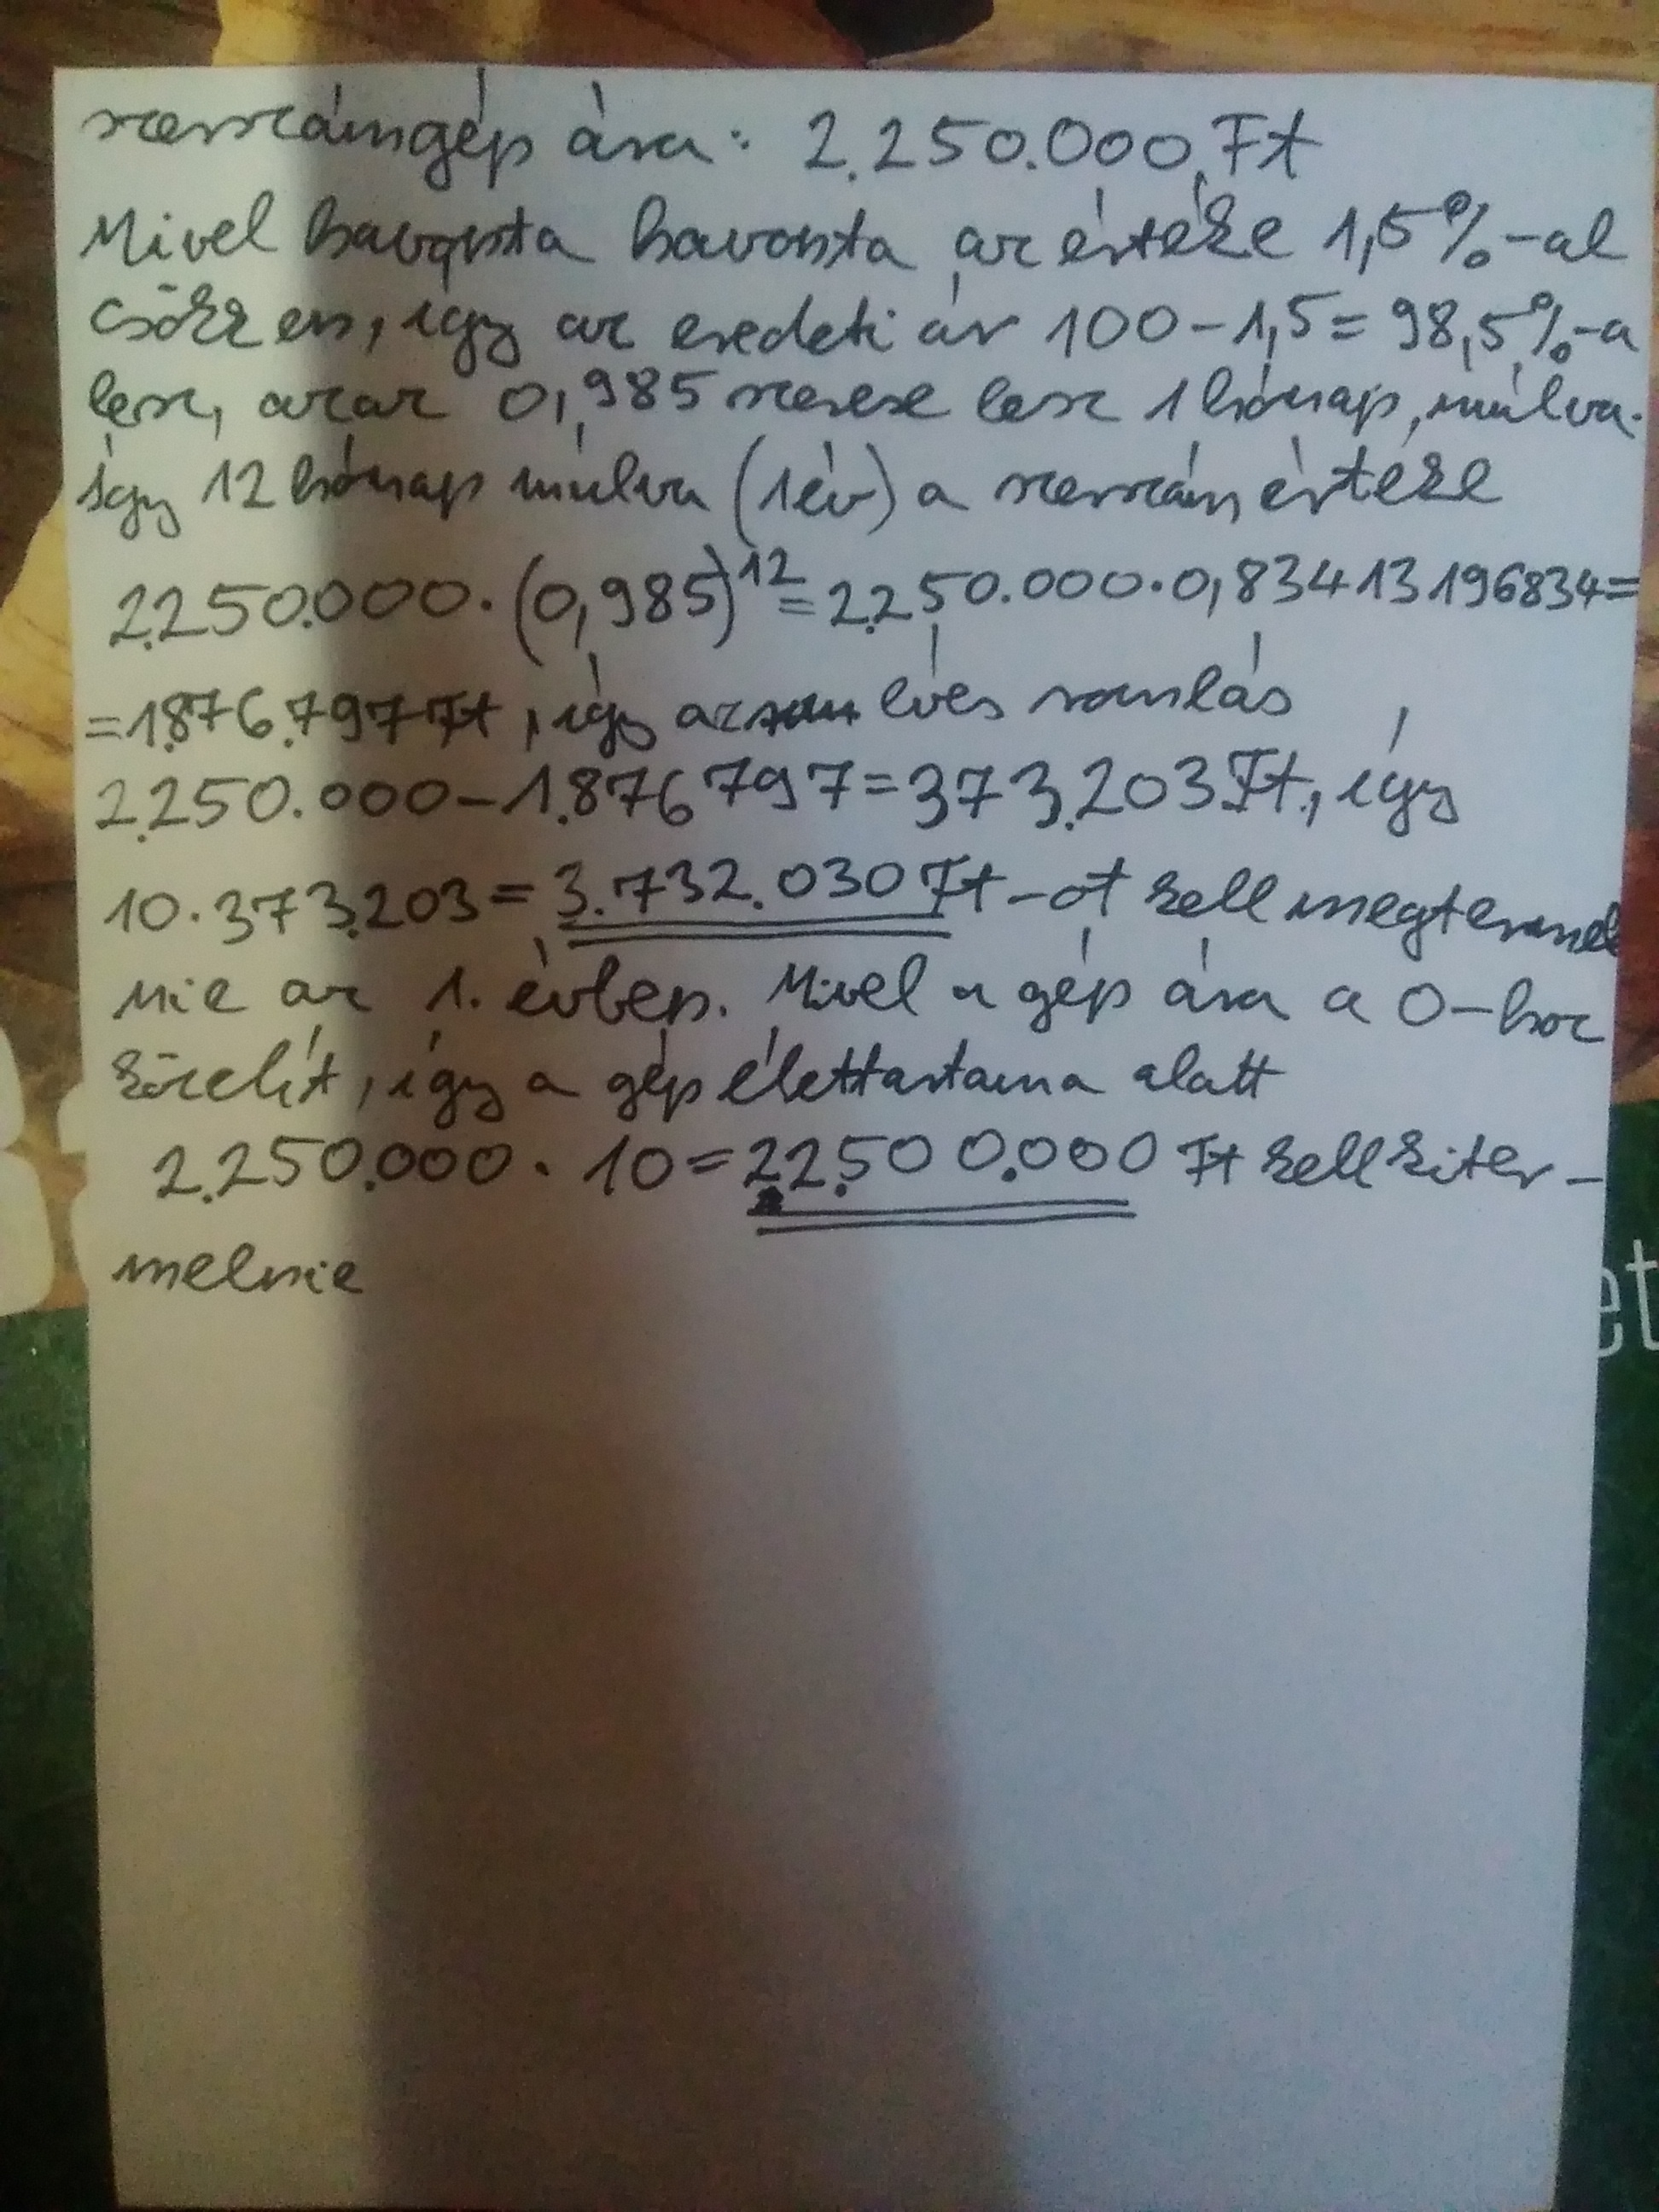 szerszámgép ára: 2.250.000 Ft
Mivel havonta havonta az értéke 1,5%-al
csökken, így az eredeti ár 100-1,5=98,5%-a
lesz, azaz 0,985 szerese lesz 1 hónap múlva.
Így 12 hónap múlva (1 év) a szerszám értéke
2.250.000·(0,985)^12=2.250.000·0,83413196834=
=1.876.797 Ft, így az éves romlás
2.250.000-1.876797=373.203 Ft, így
10·373.203=3.732.030 Ft-ot kell megtermel
nie az 1. évben. Mivel a gép ára a 0-hoz
közelít, így a gép élettartama alatt
2.250.000·10=22.500.000 Ft kell kiter-
melnie
et